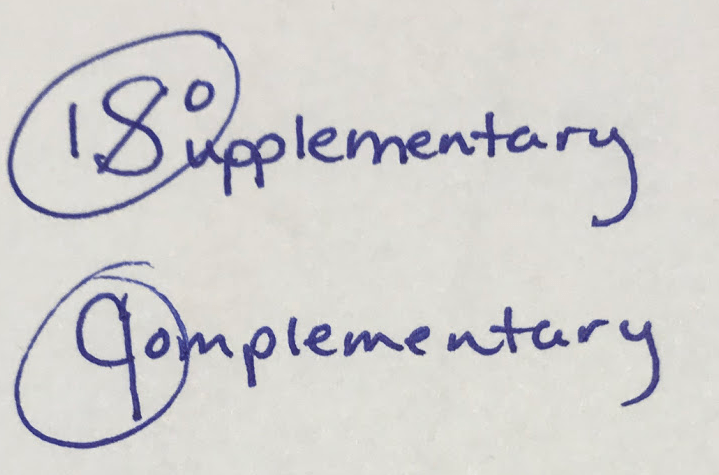 18°upplementary
90mplementary